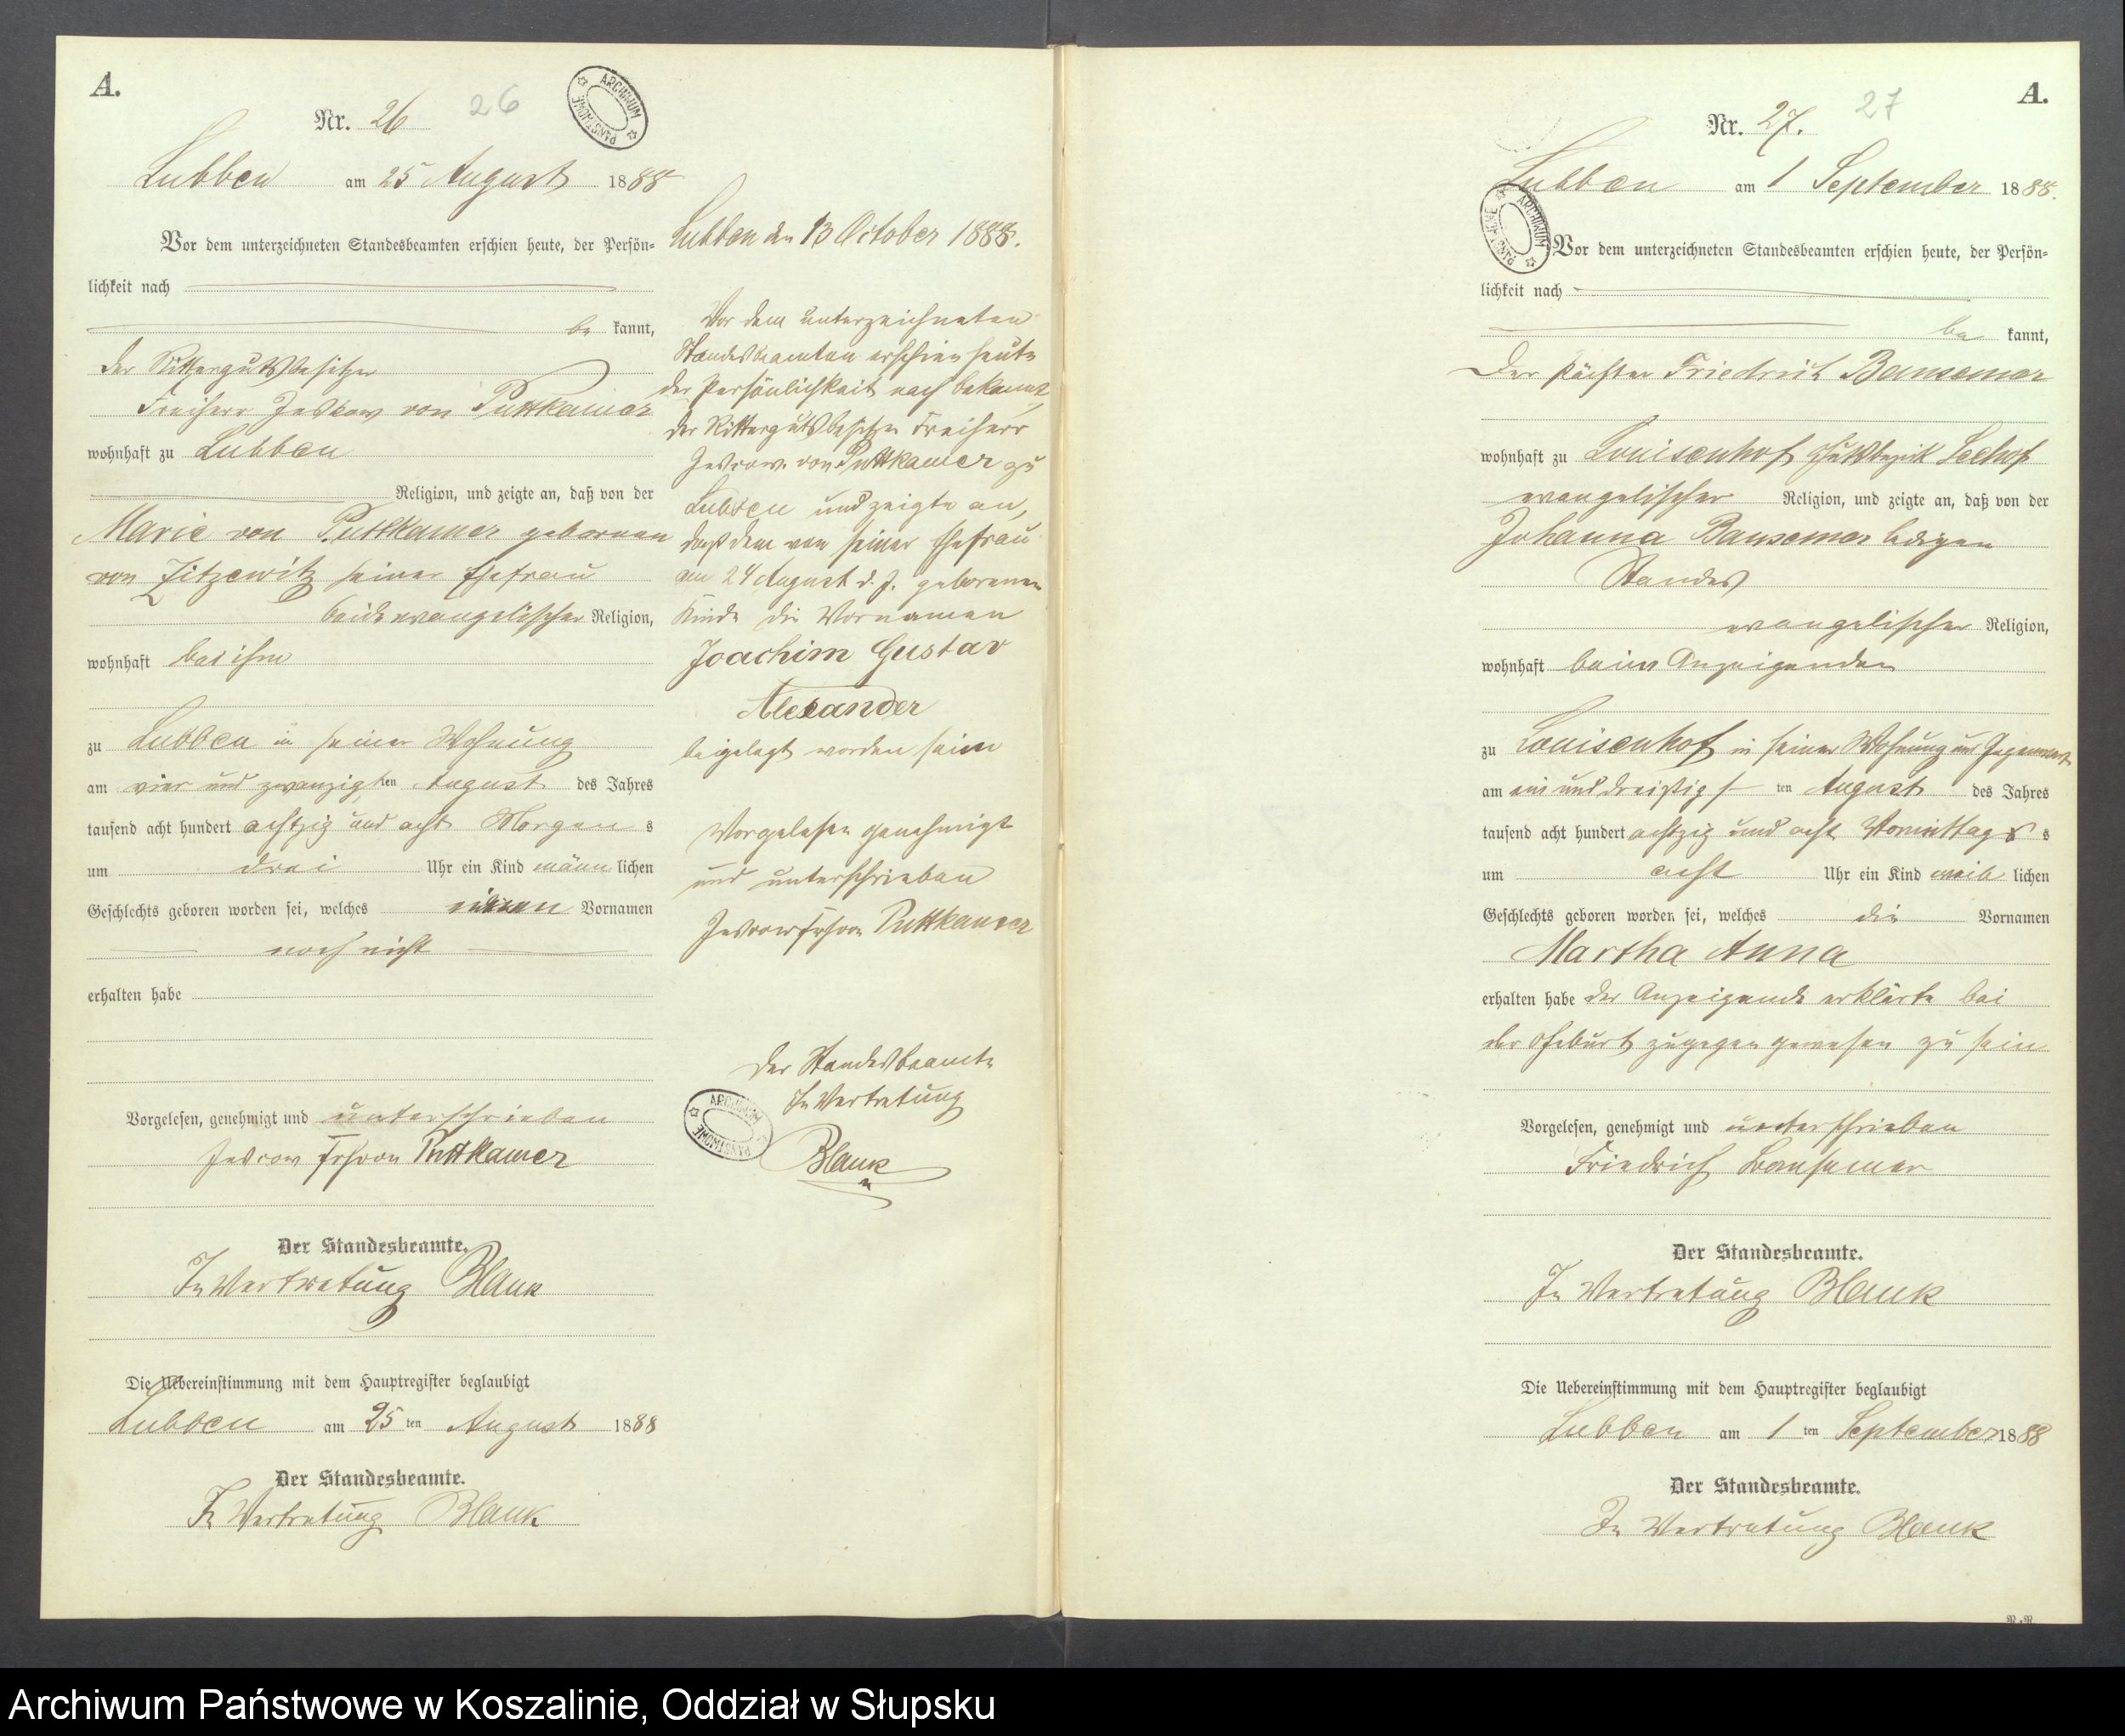 A.
Nr. 26
26
ARCHIWUM PAŃSTWOWE
Lubben am 25 August 1888
Vor dem unterzeichneten Standesbeamten erschien heute, der Persön-
lichkeit nach
be kannt,
der Rittergutsbesitzer
Freiherr Jescow von Puttkamer
wohnhaft zu Lubben
Religion, und zeigte an, daß von der
Marie von Puttkamer geborenen
von Zitzewitz seiner Ehefrau
beide evangelischer Religion,
wohnhaft bei ihm
zu Lubben in seiner Wohnung
am vier und zwanzigsten August des Jahres
tausend acht hundert achtzig und acht Morgens
um drei Uhr ein Kind männlichen
Geschlechts geboren worden sei, welches Vornamen
noch nicht
erhalten habe
Vorgelesen, genehmigt und unterschrieben
Jescow Frh von Puttkamer
Der Standesbeamte.
In Vertretung Blank
Die Uebereinstimmung mit dem Hauptregister beglaubigt
Lubben am 25 ten August 1888
Der Standesbeamte.
In Vertretung Blank
Lubben den 13 October 1888.
Vor dem unterzeichneten
Standesbeamten erschien heute
der Persönlichkeit nach bekannt,
der Rittergutsbesitzer Freiherr
Jescow von Puttkamer zu
Lubben und zeigte an,
daß dem von seiner Ehefrau
am 24 August d. J. geborenen
Kinde die Vornamen
Joachim Gustav
Alexander
beigelegt worden seien
Vorgelesen genehmigt
und unterschrieben
Jescow Frh von Puttkamer
Der Standesbeamte
In Vertretung
ARCHIWUM PAŃSTWOWE
Blank
A.
Nr. 27.
27
Lubben am 1 September 1888.
ARCHIWUM PAŃSTWOWE
Vor dem unterzeichneten Standesbeamten erschien heute, der Persön-
lichkeit nach
be kannt,
Der Pächter Friedrich Bansemer
wohnhaft zu Louisenhof Gutsbezirk Seehof
evangelischer Religion, und zeigte an, daß von der
Johanna Bansemer ledigen
Standes
evangelischer Religion,
wohnhaft beim Anzeigenden
zu Louisenhof in seiner Wohnung und Gegenwart
am ein und dreißigsten August des Jahres
tausend acht hundert achtzig und acht Vormittags s
um acht Uhr ein Kind weiblichen
Geschlechts geboren worden sei, welches die Vornamen
Martha Anna
erhalten habe der Anzeigende erklärte bei
der Geburt zugegen gewesen zu sein
Vorgelesen, genehmigt und unterschrieben
Friedrich Bansemer
Der Standesbeamte.
In Vertretung Blank
Die Uebereinstimmung mit dem Hauptregister beglaubigt
Lubben am 1 ten September 1888
Der Standesbeamte.
In Vertretung Blank
Archiwum Państwowe w Koszalinie, Oddział w Słupsku